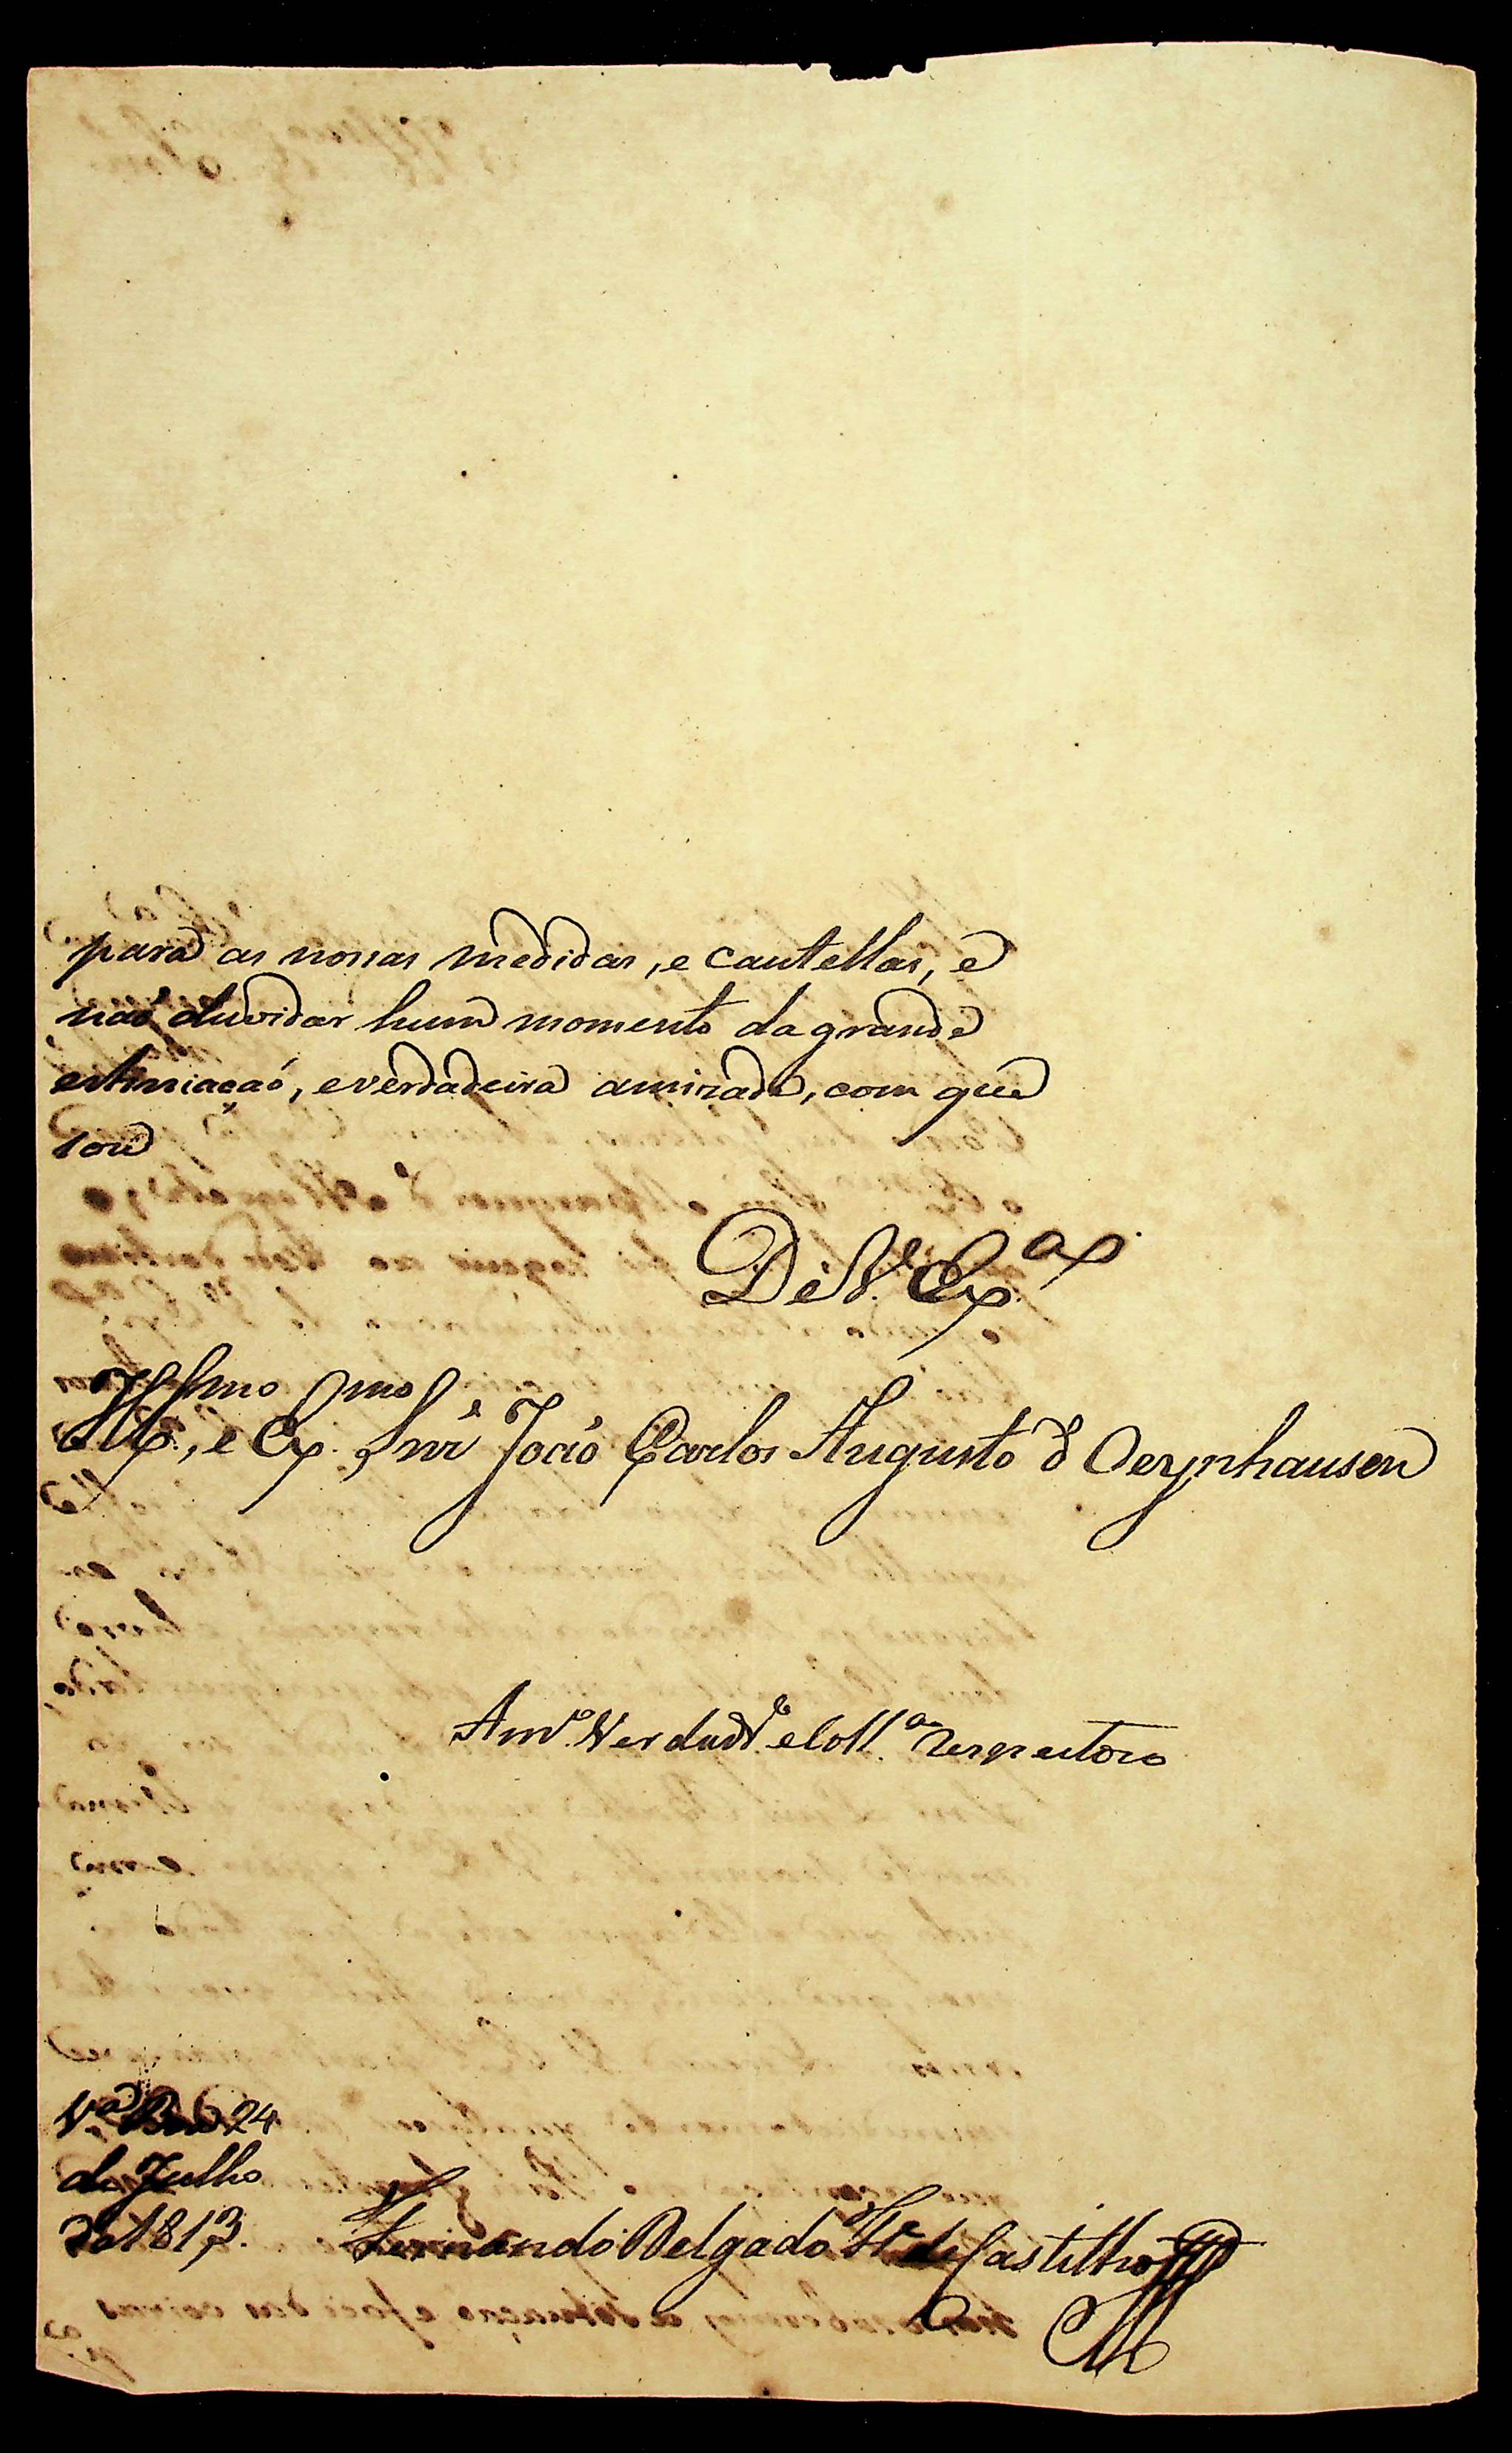 para as nossas medidas, e cautellas, e
naõ duvidar hum momento da grande
estimaçaõ, e verdadeira amizade, com que
sou
De V. Ex.ᵃ
Ill.ᵐᵒ, e Ex.ᵐᵒ Snr̃ Joaõ Carlos Augusto d'Oeynhausen
Am.º Verdad.º e Coll.ᵃ respeitozo
V.ᵃ Boa 24
de Julho
de 1813.
Fernando Delgado Fr.ᵉ de Castilho